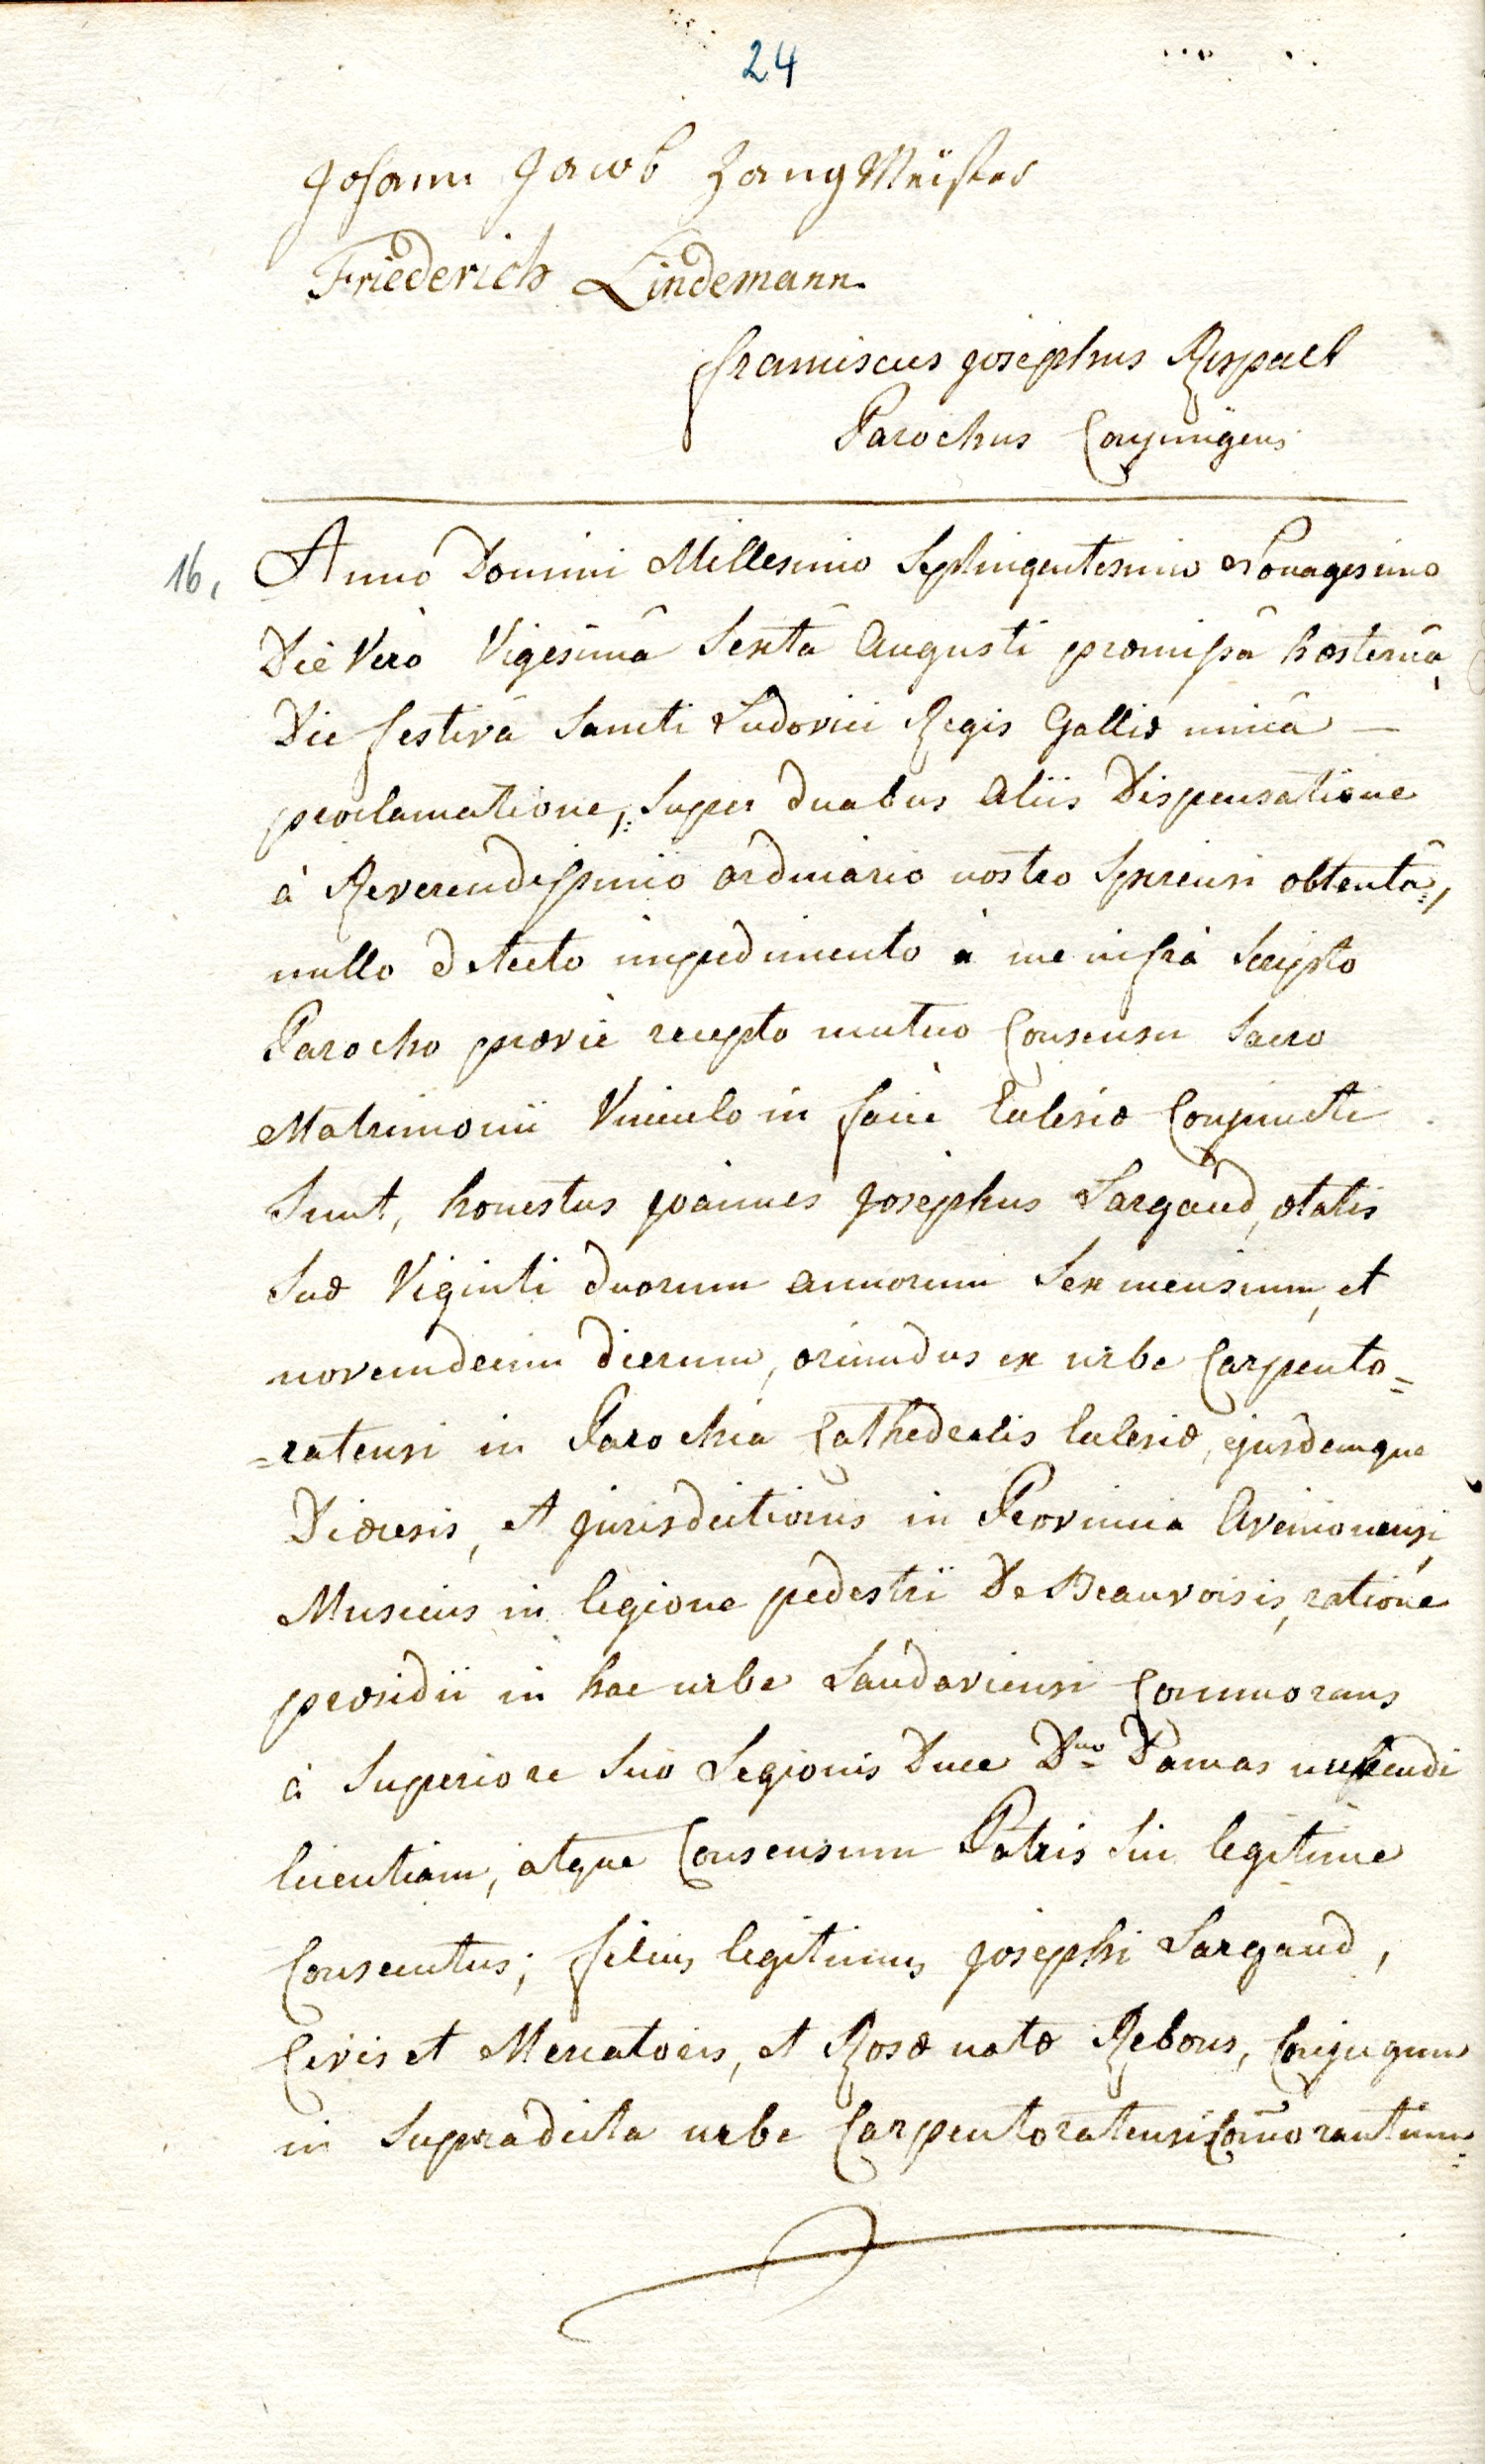 24
Johann Jacob Zang Meister
Friederich Lindemann
franciscus josephus
Parochus Conjungens
16. Anno Domini Millesimo Septingentesimo Nonagesimo
Die Vero Vigesimâ Sextâ Augusti præmissâ hæsternâ,
Die festivâ Sancti Ludovici Regis Galliæ unicâ —
proclamatione, super duabus aliis Dispensatione
à Reverendissimo ordinario nostro Spirensi obtentâ,
nullo detecto impedimento à me infrà scripto
Parocho prævie recepto mutuo Consensu Sacro
Matrimonii Vinculo in facie Ecclesiæ Conjuncti
Sunt, honestus joannes josephus Largaud, ætatis
Suæ Viginti duorum annorum Sex mensium, et
novemdecim dierum, oriundus ex urbe Carpento=
=ratensi in Parochia Cathedralis Ecclesiæ, ejusdemque
Diœcesis, et jurisdictionis in Provincia Avenionensi,
Musicus in legione pedestri De Beauvoisis, ratione
præsidii in hac urbe Landaviensi Commorans
à Superiore Suo Legionis Duce Dno Damas
licentiam, atque Consensum Patris Sui legitime
Consecutus; filius legitimus josephi Largaud,
Civis et Mercatoris, et Rosæ natæ Rebous, Conjugum
in Supradicta urbe Carpentoratensi Com̄orantium.